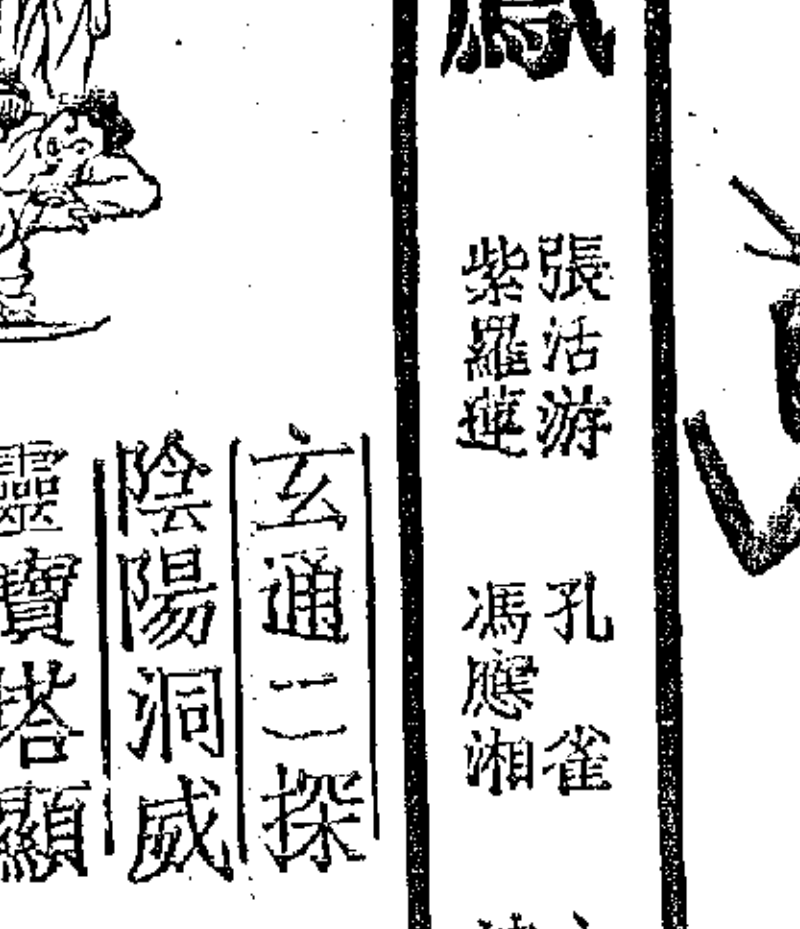 張活游
紫羅蓮
孔雀
馮應湘
玄通二探
陰陽洞威
靈寶塔顯